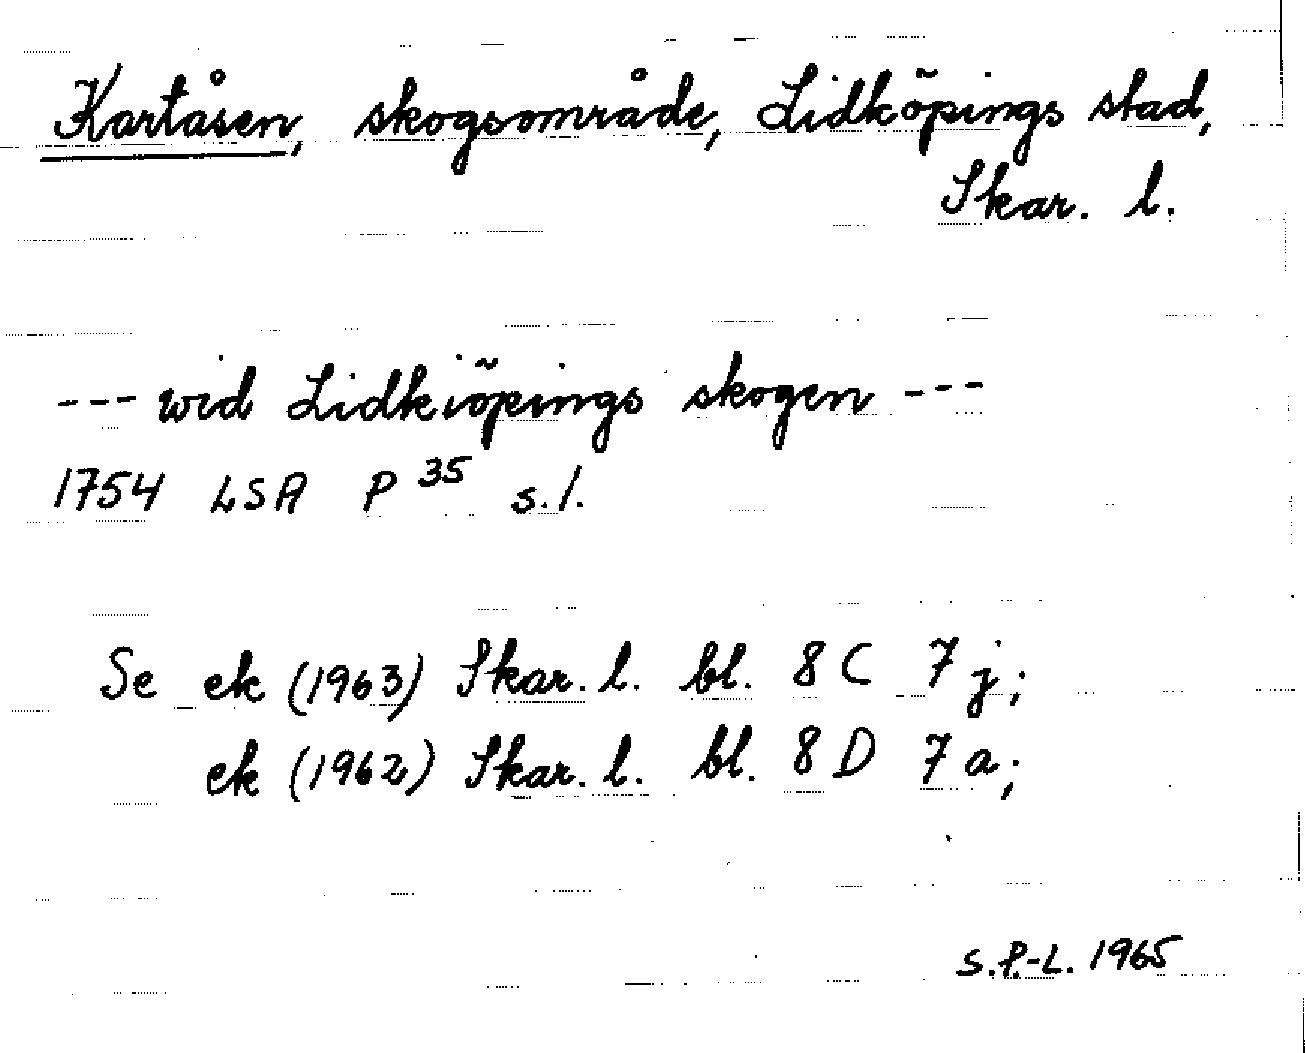 Kartåsen, skogsområde, Lidköpings stad,
Skar. l.
--- wid Lidkiöpings skogen ---
1754 LSA P 35 s. 1.
Se ek (1963) Skar. l. bl. 8 C 7 j;
ek (1962) Skar. l. bl. 8 D 7 a;
S.P.-L. 1965